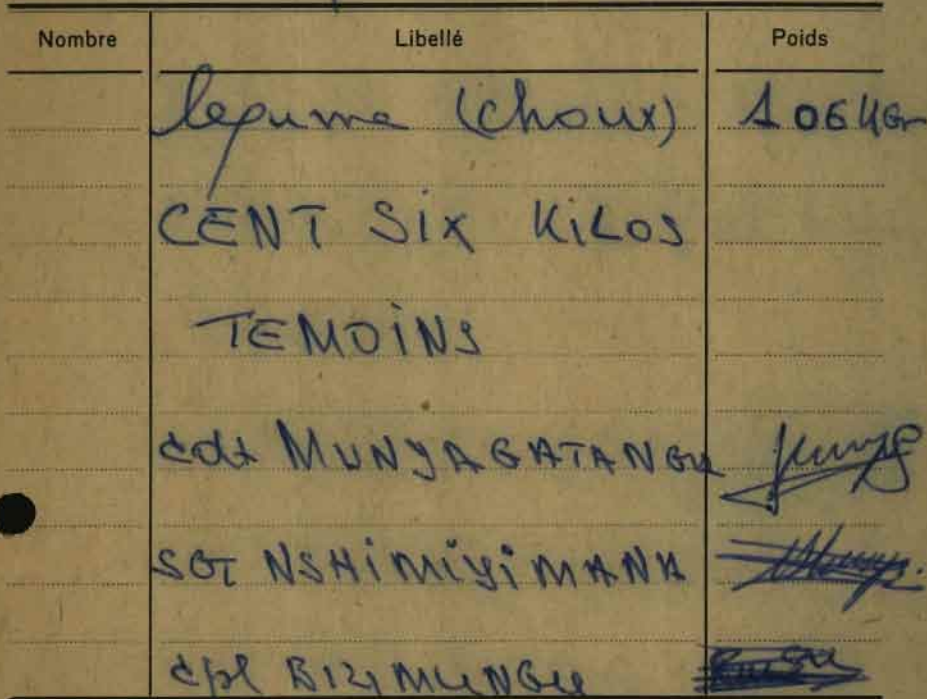 Nombre Libellé Poids
legume (choux) 106 KGr
CENT SIX KILOS
TEMOINS
cdt MUNYAGATANGU
SGT NSHIMIYIMANA
cpl BIZIMUNGU